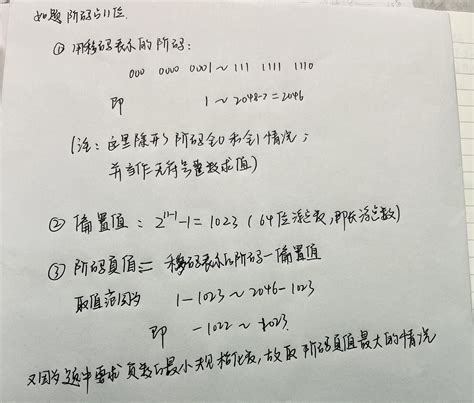 如题 阶码占11位.
① 用移码表示的阶码:
000 0000 0001 ~ 111 1111 1110
即 1 ~ 2048-2=2046
(注: 这里除开了阶码全0和全1情况;
并当作无符号整数求值)
② 偏置值: 2^11-1-1=1023 (64位浮点数,即长浮点数)
③ 阶码真值= 移码表示的阶码-偏置值
取值范围为 1-1023 ~ 2046-1023
即 -1022 ~ 1023.
又因为题中要求 负数的最小规格化数,故取 阶码真值最大的情况